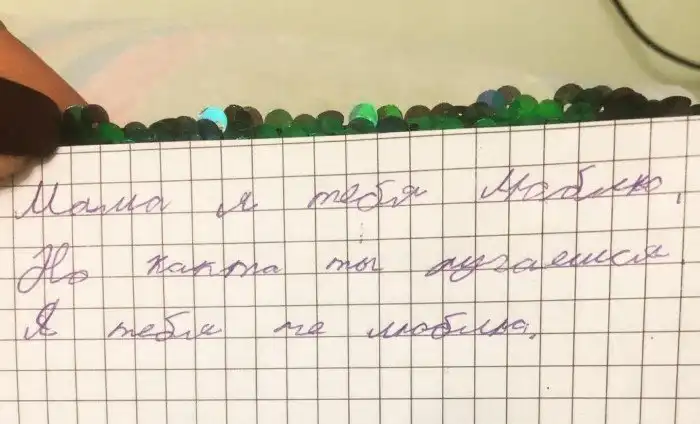 Мама я тебя люблю,
Но какта ты ругаешся
Я тебя не люблю.